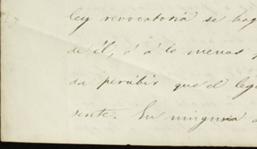 ley revocatoria se hag
de él, ó á lo menos
da percibir que el leg
sente. En ninguna